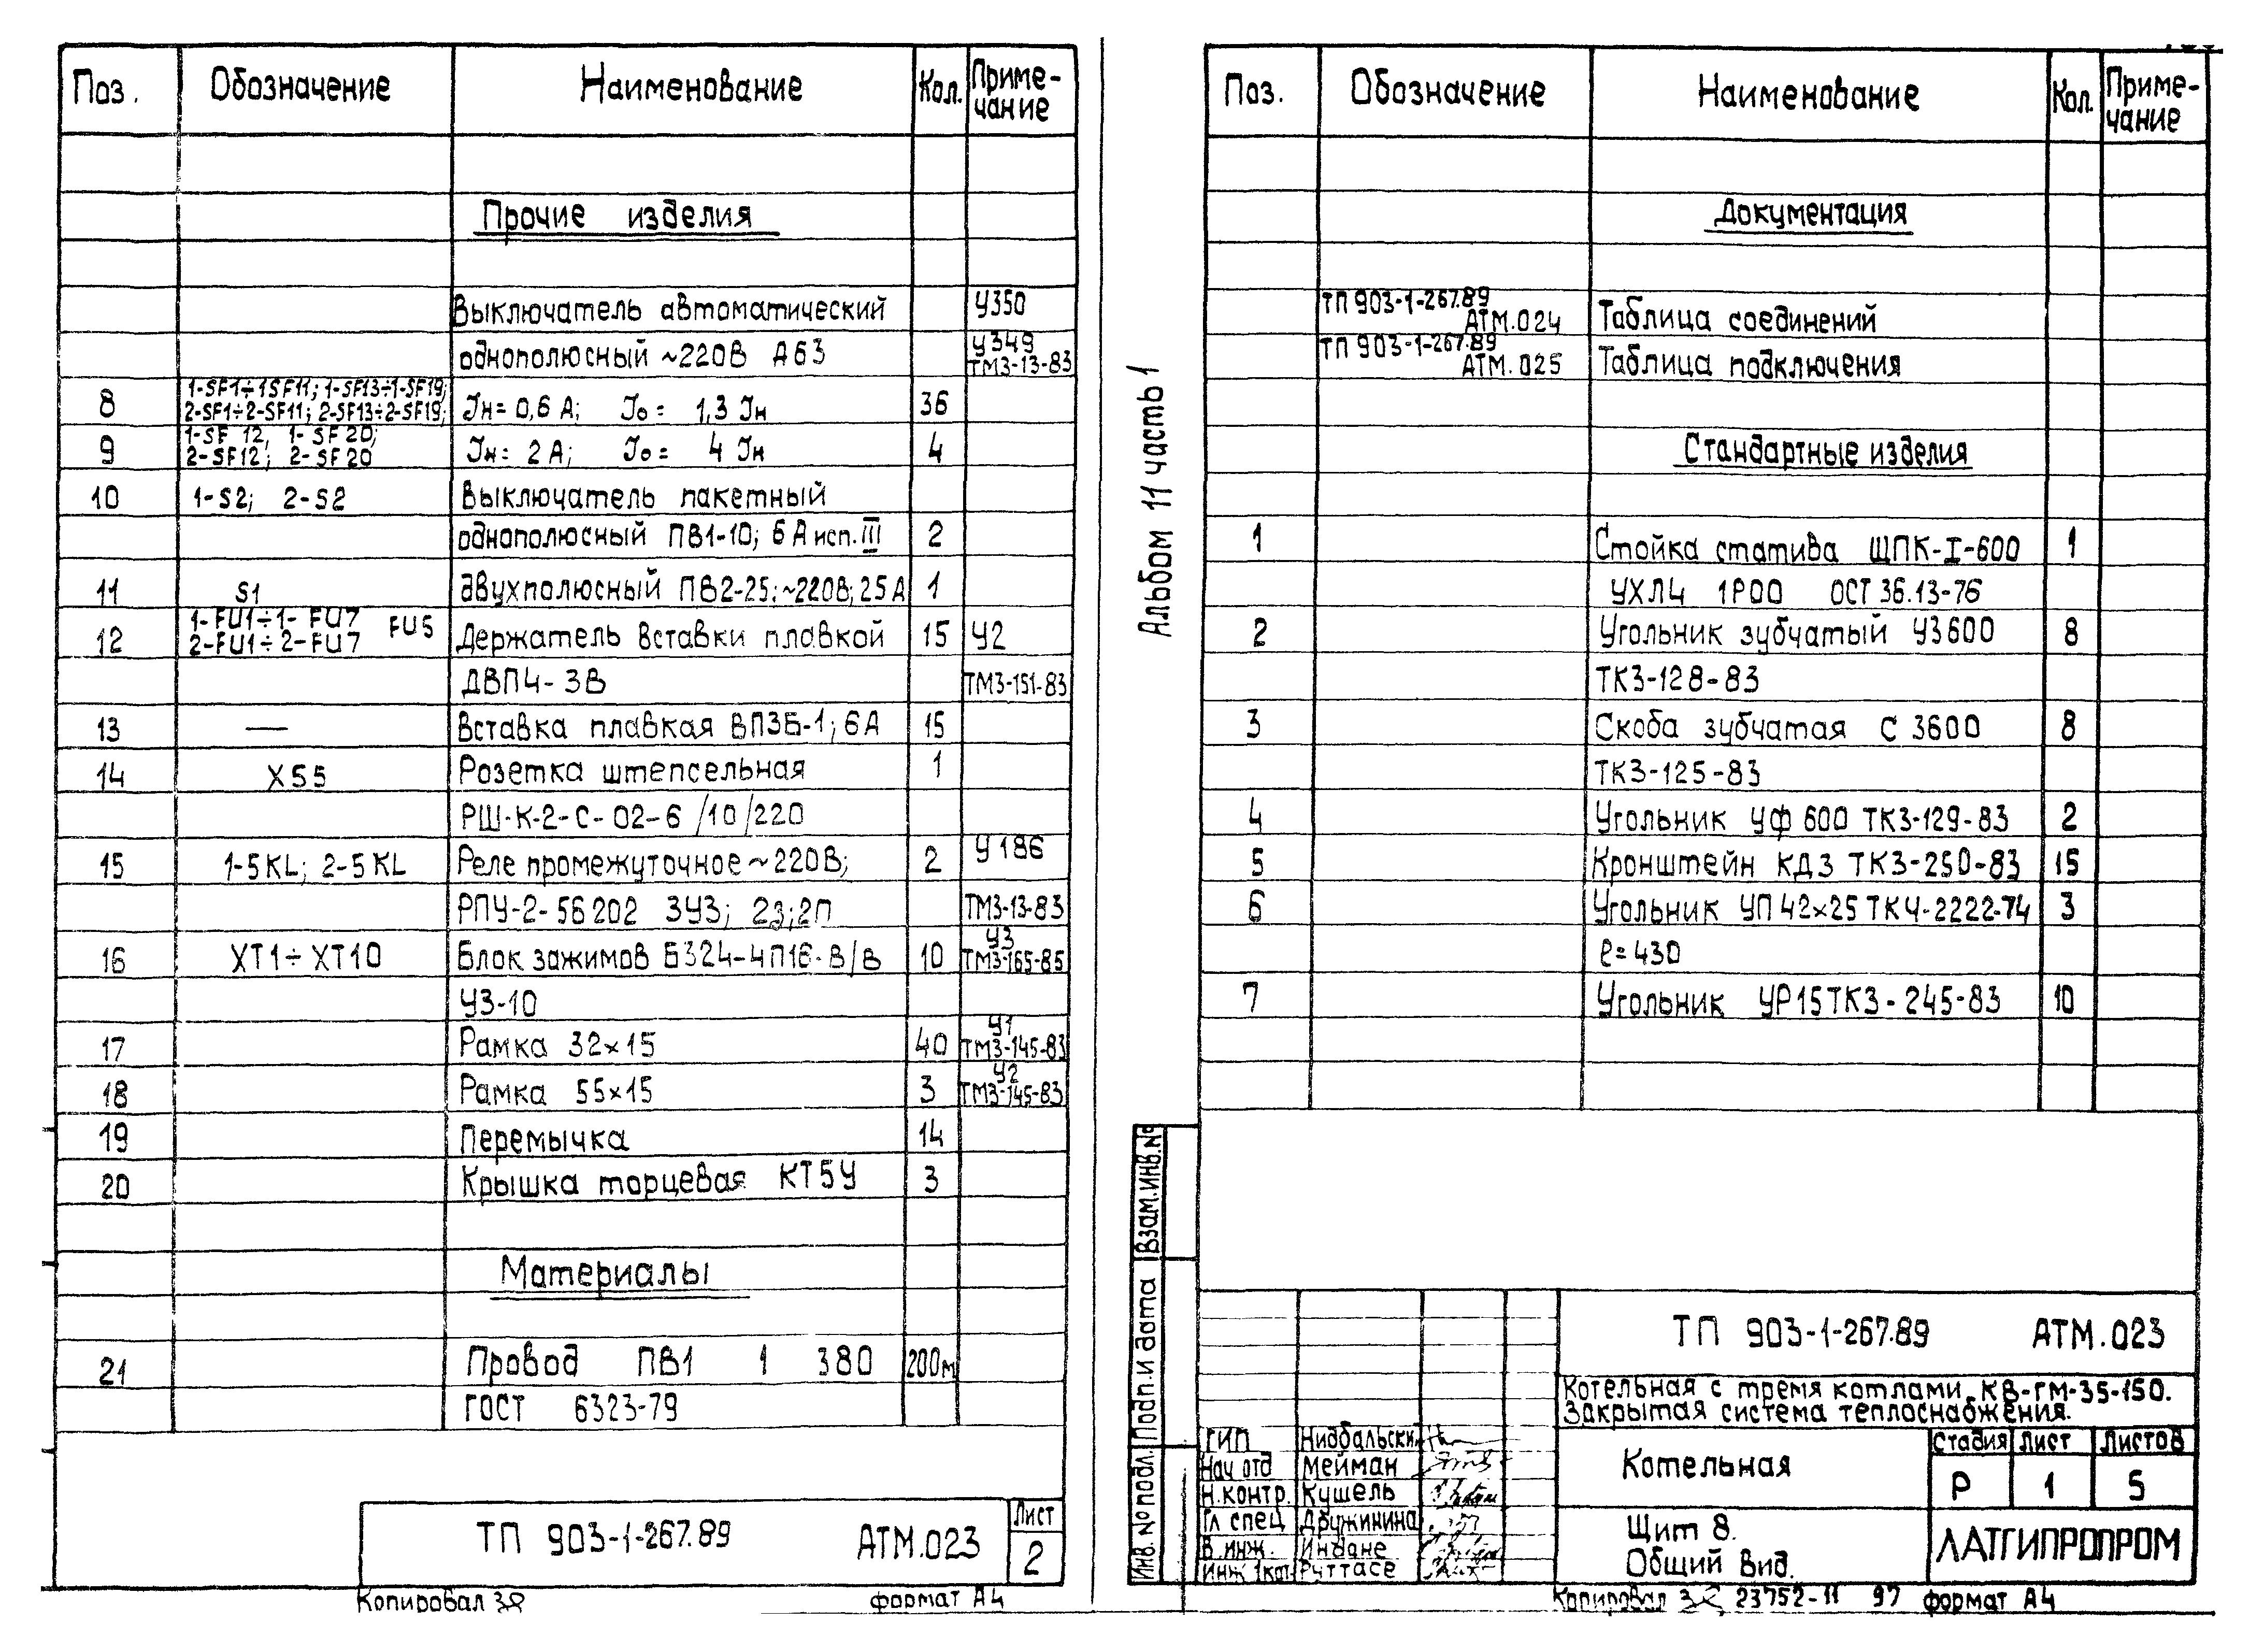 Поз. Обозначение Наименование Кол. Приме-
чание
Прочие изделия
Выключатель автоматический У350
однополюсный ~220В А63 У349
ТМ3-13-83
1-SF1÷1SF11; 1-SF13÷1-SF19;
8 2-SF1÷2-SF11; 2-SF13÷2-SF19; Iн= 0,6 А; Iо= 1,3 Iн 36
1-SF 12, 1-SF20;
9 2-SF12; 2-SF20 Iн= 2А; Iо= 4 Iн 4
10 1-S2; 2-S2 Выключатель пакетный
однополюсный ПВ1-10; 6А исп. III 2
11 S1 двухполюсный ПВ2-25; ~220В; 25А 1
1-FU1÷1-FU7 FU5
12 2-FU1÷2-FU7 Держатель вставки плавкой 15 У2
ДВП4-3В ТМ3-151-83
13 — Вставка плавкая ВП3Б-1; 6А 15
14 XS5 Розетка штепсельная 1
РШ-К-2-С-02-6/10/220
15 1-5KL; 2-5KL Реле промежуточное ~220В; 2 У186
РПУ-2-56202 3У3; 2з;2п ТМ3-13-83
16 XT1÷XT10 Блок зажимов Б324-4П16-В/В 10 У3
ТМ3-165-85
У3-10
17 Рамка 32×15 40 У1
ТМ3-145-83
18 Рамка 55×15 3 У2
ТМ3-145-83
19 Перемычка 14
20 Крышка торцевая КТ5У 3
Материалы
21 Провод ПВ1 1 380 200м
ГОСТ 6323-79
ТП 903-1-267.89 АТМ.023
Лист
2
Копировал формат А4
Альбом 11 часть 1
Поз. Обозначение Наименование Кол. Приме-
чание
Документация
ТП 903-1-267.89
АТМ.024 Таблица соединений
ТП 903-1-267.89
АТМ.025 Таблица подключения
Стандартные изделия
1 Стойка статива ЩПК-I-600 1
УХЛ4 1Р00 ОСТ 36.13-76
2 Угольник зубчатый УЗ600 8
ТК3-128-83
3 Скоба зубчатая С 3600 8
ТК3-125-83
4 Угольник УФ 600 ТК3-129-83 2
5 Кронштейн КД3 ТК3-250-83 15
6 Угольник УП 42×25 ТК4-2222-74 3
ℓ=430
7 Угольник УР15ТК3-245-83 10
Взам.инв.№
Подп.и дата
Инв. № подл.
ТП 903-1-267.89 АТМ.023
Котельная с тремя котлами КВ-ГМ-35-150.
Закрытая система теплоснабжения.
ГИП Нидбальски
Нач отд Мейман
Н.контр. Кушель
Гл спец Дружинина
В.инж. Индане
Инж 1кат Руттасе
Котельная
Стадия Лист Листов
Р 1 5
Щит 8.
Общий вид.
ЛАТГИПРОПРОМ
Копировал 23752-11 97 формат А4